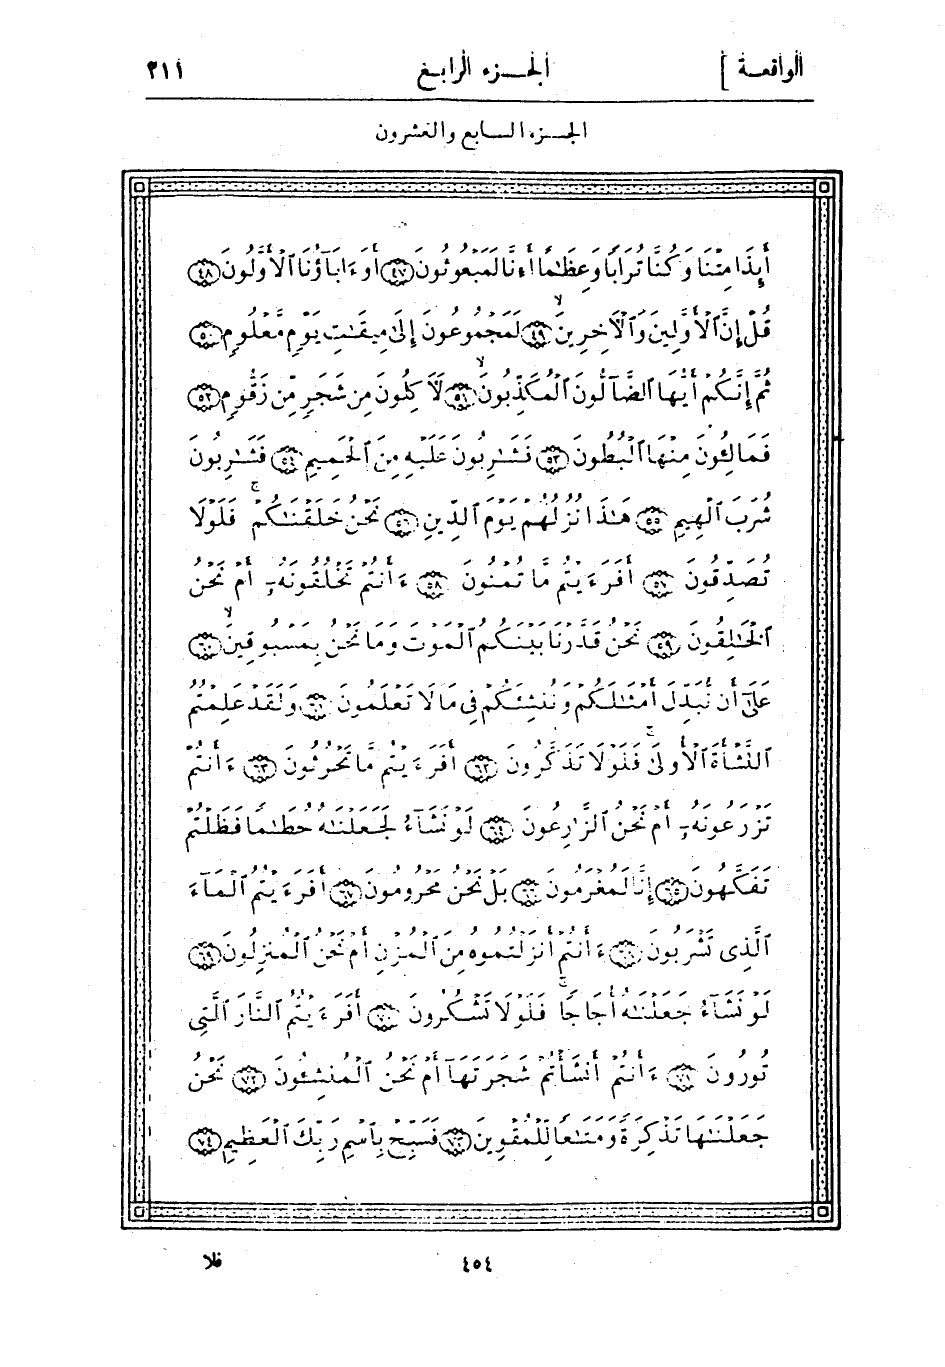 الواقعة ] الجزء الرابع ٢١١
الجزء السابع والعشرون
أَىِٕذَا مِتْنَا وَكُنَّا تُرَابًا وَعِظَٰمًا أَءِنَّا لَمَبْعُوثُونَ ٤٧ أَوَءَابَآؤُنَا ٱلْأَوَّلُونَ ٤٨
قُلْ إِنَّ ٱلْأَوَّلِينَ وَٱلْآخِرِينَۙ ٤٩ لَمَجْمُوعُونَ إِلَىٰ مِيقَٰتِ يَوْمٍ مَّعْلُومٍ ٥٠
ثُمَّ إِنَّكُمْ أَيُّهَا ٱلضَّآلُّونَ ٱلْمُكَذِّبُونَۙ ٥١ لَآكِلُونَ مِن شَجَرٍ مِّن زَقُّومٍ ٥٢
فَمَالِئُونَ مِنْهَا ٱلْبُطُونَ ٥٣ فَشَٰرِبُونَ عَلَيْهِ مِنَ ٱلْحَمِيمِ ٥٤ فَشَٰرِبُونَ
شُرْبَ ٱلْهِيمِ ٥٥ هَٰذَا نُزُلُهُمْ يَوْمَ ٱلدِّينِ ٥٦ نَحْنُ خَلَقْنَٰكُمْۚ فَلَوْلَا
تُصَدِّقُونَ ٥٧ أَفَرَءَيْتُم مَّا تُمْنُونَ ٥٨ ءَأَنتُمْ تَخْلُقُونَهُۥٓ أَمْ نَحْنُ
ٱلْخَٰلِقُونَ ٥٩ نَحْنُ قَدَّرْنَا بَيْنَكُمُ ٱلْمَوْتَ وَمَا نَحْنُ بِمَسْبُوقِينَۙ ٦٠
عَلَىٰٓ أَن نُّبَدِّلَ أَمْثَٰلَكُمْ وَنُنشِئَكُمْ فِى مَا لَا تَعْلَمُونَ ٦١ وَلَقَدْ عَلِمْتُمُ
ٱلنَّشْأَةَ ٱلْأُولَىٰۚ فَلَوْلَا تَذَكَّرُونَ ٦٢ أَفَرَءَيْتُم مَّا تَحْرُثُونَ ٦٣ ءَأَنتُمْ
تَزْرَعُونَهُۥٓ أَمْ نَحْنُ ٱلزَّٰرِعُونَ ٦٤ لَوْ نَشَآءُ لَجَعَلْنَٰهُ حُطَٰمًا فَظَلْتُمْ
تَفَكَّهُونَ ٦٥ إِنَّا لَمُغْرَمُونَ ٦٦ بَلْ نَحْنُ مَحْرُومُونَ ٦٧ أَفَرَءَيْتُمُ ٱلْمَآءَ
ٱلَّذِى تَشْرَبُونَ ٦٨ ءَأَنتُمْ أَنزَلْتُمُوهُ مِنَ ٱلْمُزْنِ أَمْ نَحْنُ ٱلْمُنزِلُونَ ٦٩
لَوْ نَشَآءُ جَعَلْنَٰهُ أُجَاجًاۚ فَلَوْلَا تَشْكُرُونَ ٧٠ أَفَرَءَيْتُمُ ٱلنَّارَ ٱلَّتِى
تُورُونَ ٧١ ءَأَنتُمْ أَنشَأْتُمْ شَجَرَتَهَآ أَمْ نَحْنُ ٱلْمُنشِئُونَ ٧٢ نَحْنُ
جَعَلْنَٰهَا تَذْكِرَةً وَمَتَٰعًا لِّلْمُقْوِينَ ٧٣ فَسَبِّحْ بِٱسْمِ رَبِّكَ ٱلْعَظِيمِ ٧٤
٤٥٤ فلا